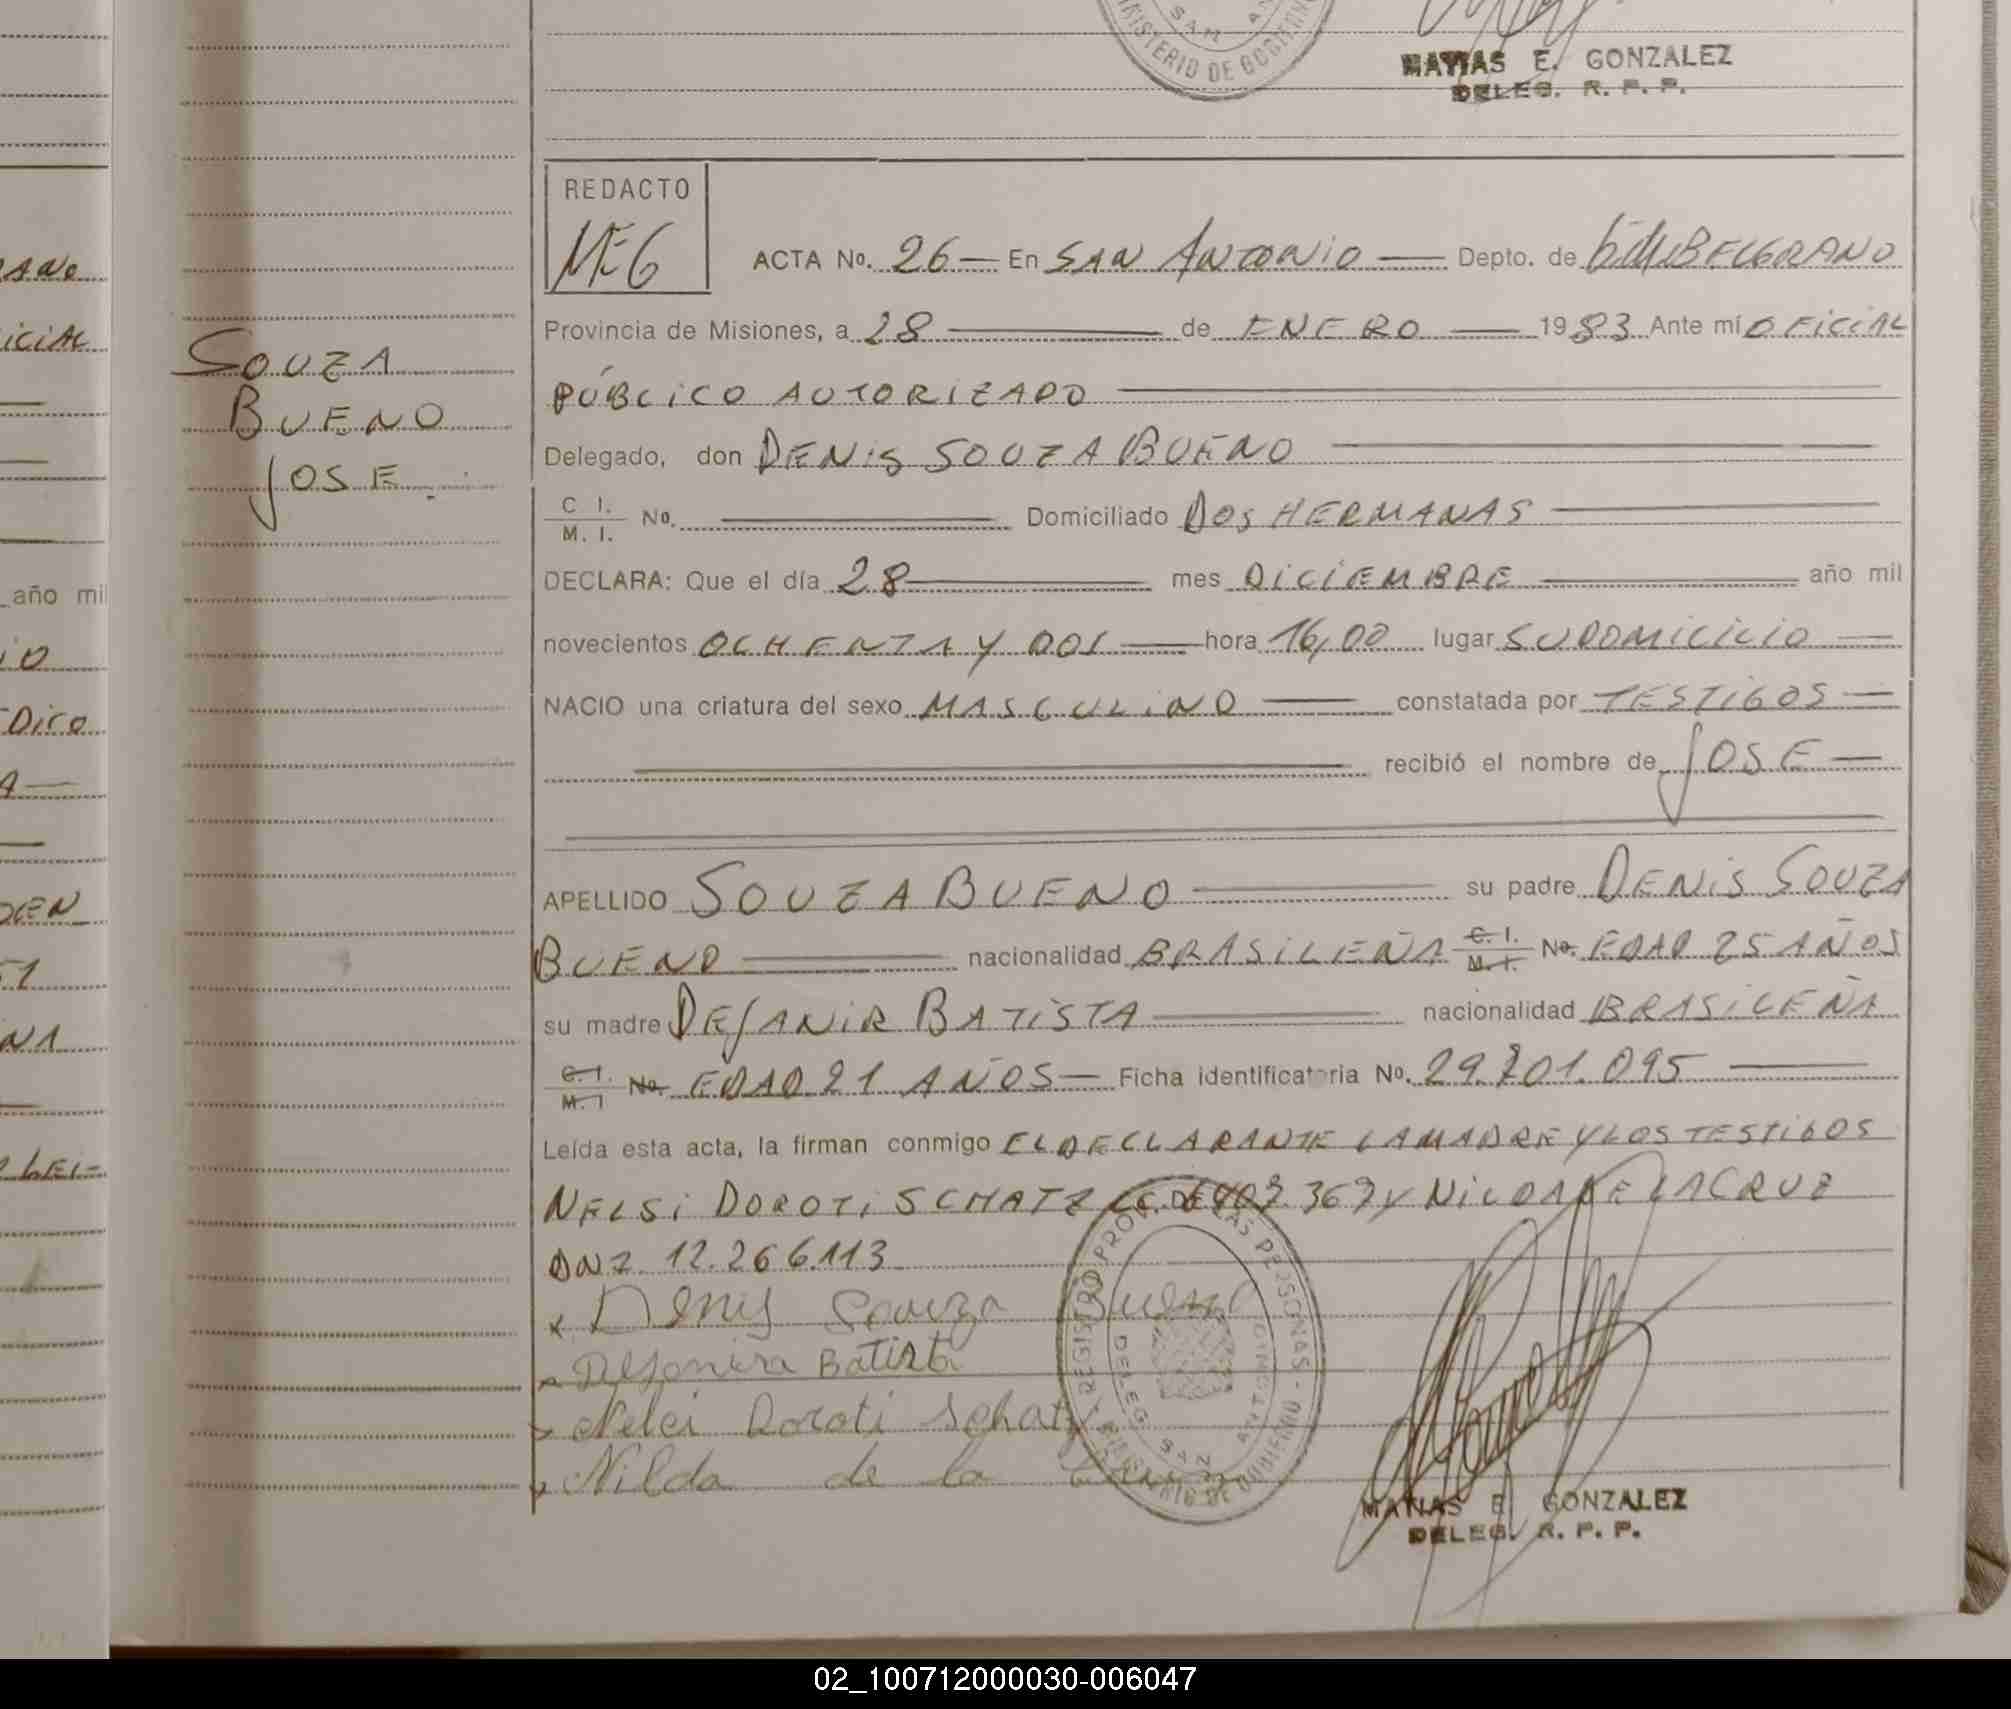 MINISTERIO DE GOBIERNO
SAN AN
MATIAS E. GONZALEZ
DELEG. R. P. P.
REDACTO
MEG
ACTA No. 26 — En SAN ANTONIO — Depto. de BELGRANO
Provincia de Misiones, a 28 — de ENERO — 1983 Ante mí OFICIAL
PÚBLICO AUTORIZADO —
Delegado, don DENIS SOUZA BUENO —
C I.
M. I. No. — Domiciliado DOS HERMANAS —
DECLARA: Que el día 28 — mes DICIEMBRE — año mil
novecientos OCHENTA Y DOS — hora 16,00 lugar SU DOMICILIO —
NACIO una criatura del sexo MASCULINO — constatada por TESTIGOS —
— recibió el nombre de JOSE —
APELLIDO SOUZA BUENO — su padre DENIS SOUZA
BUENO — nacionalidad BRASILEÑA C. I. M. I. No. EDAD 25 AÑOS
su madre DEJANIR BATISTA — nacionalidad BRASILEÑA
C. I. M. I No. EDAD 21 AÑOS — Ficha identificatoria No. 29.701.095 —
Leída esta acta, la firman conmigo EL DECLARANTE LA MADRE Y LOS TESTIGOS
NELSI DOROTI SCHATZ Y NILDA DE LA CRUZ
12.266.113
x Denis Souza Bueno
Dejanira Batista
Nelci Doroti Schatz
Nilda de la Cruz
REGISTRO PROV. DE LAS PERSONAS - MINISTERIO DE GOBIERNO
DELEG. SAN ANTONIO
MATIAS E. GONZALEZ
DELEG. R. P. P.
SOUZA
BUENO
JOSE
ICIAL
año mil
DICO
02_100712000030-006047